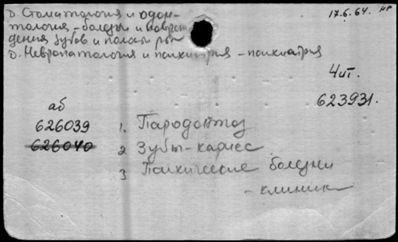 D. Стоматология и одон-
тология - болезни и повреж
дения зубов и полости рта
D. Невропатология и психиатрия - психиатрия
17.6.64.
Чит.
623931.
аб
626039
626040
1. Пародонтоз
2 Зубы - кариес
3 Психические болезни
- клиника